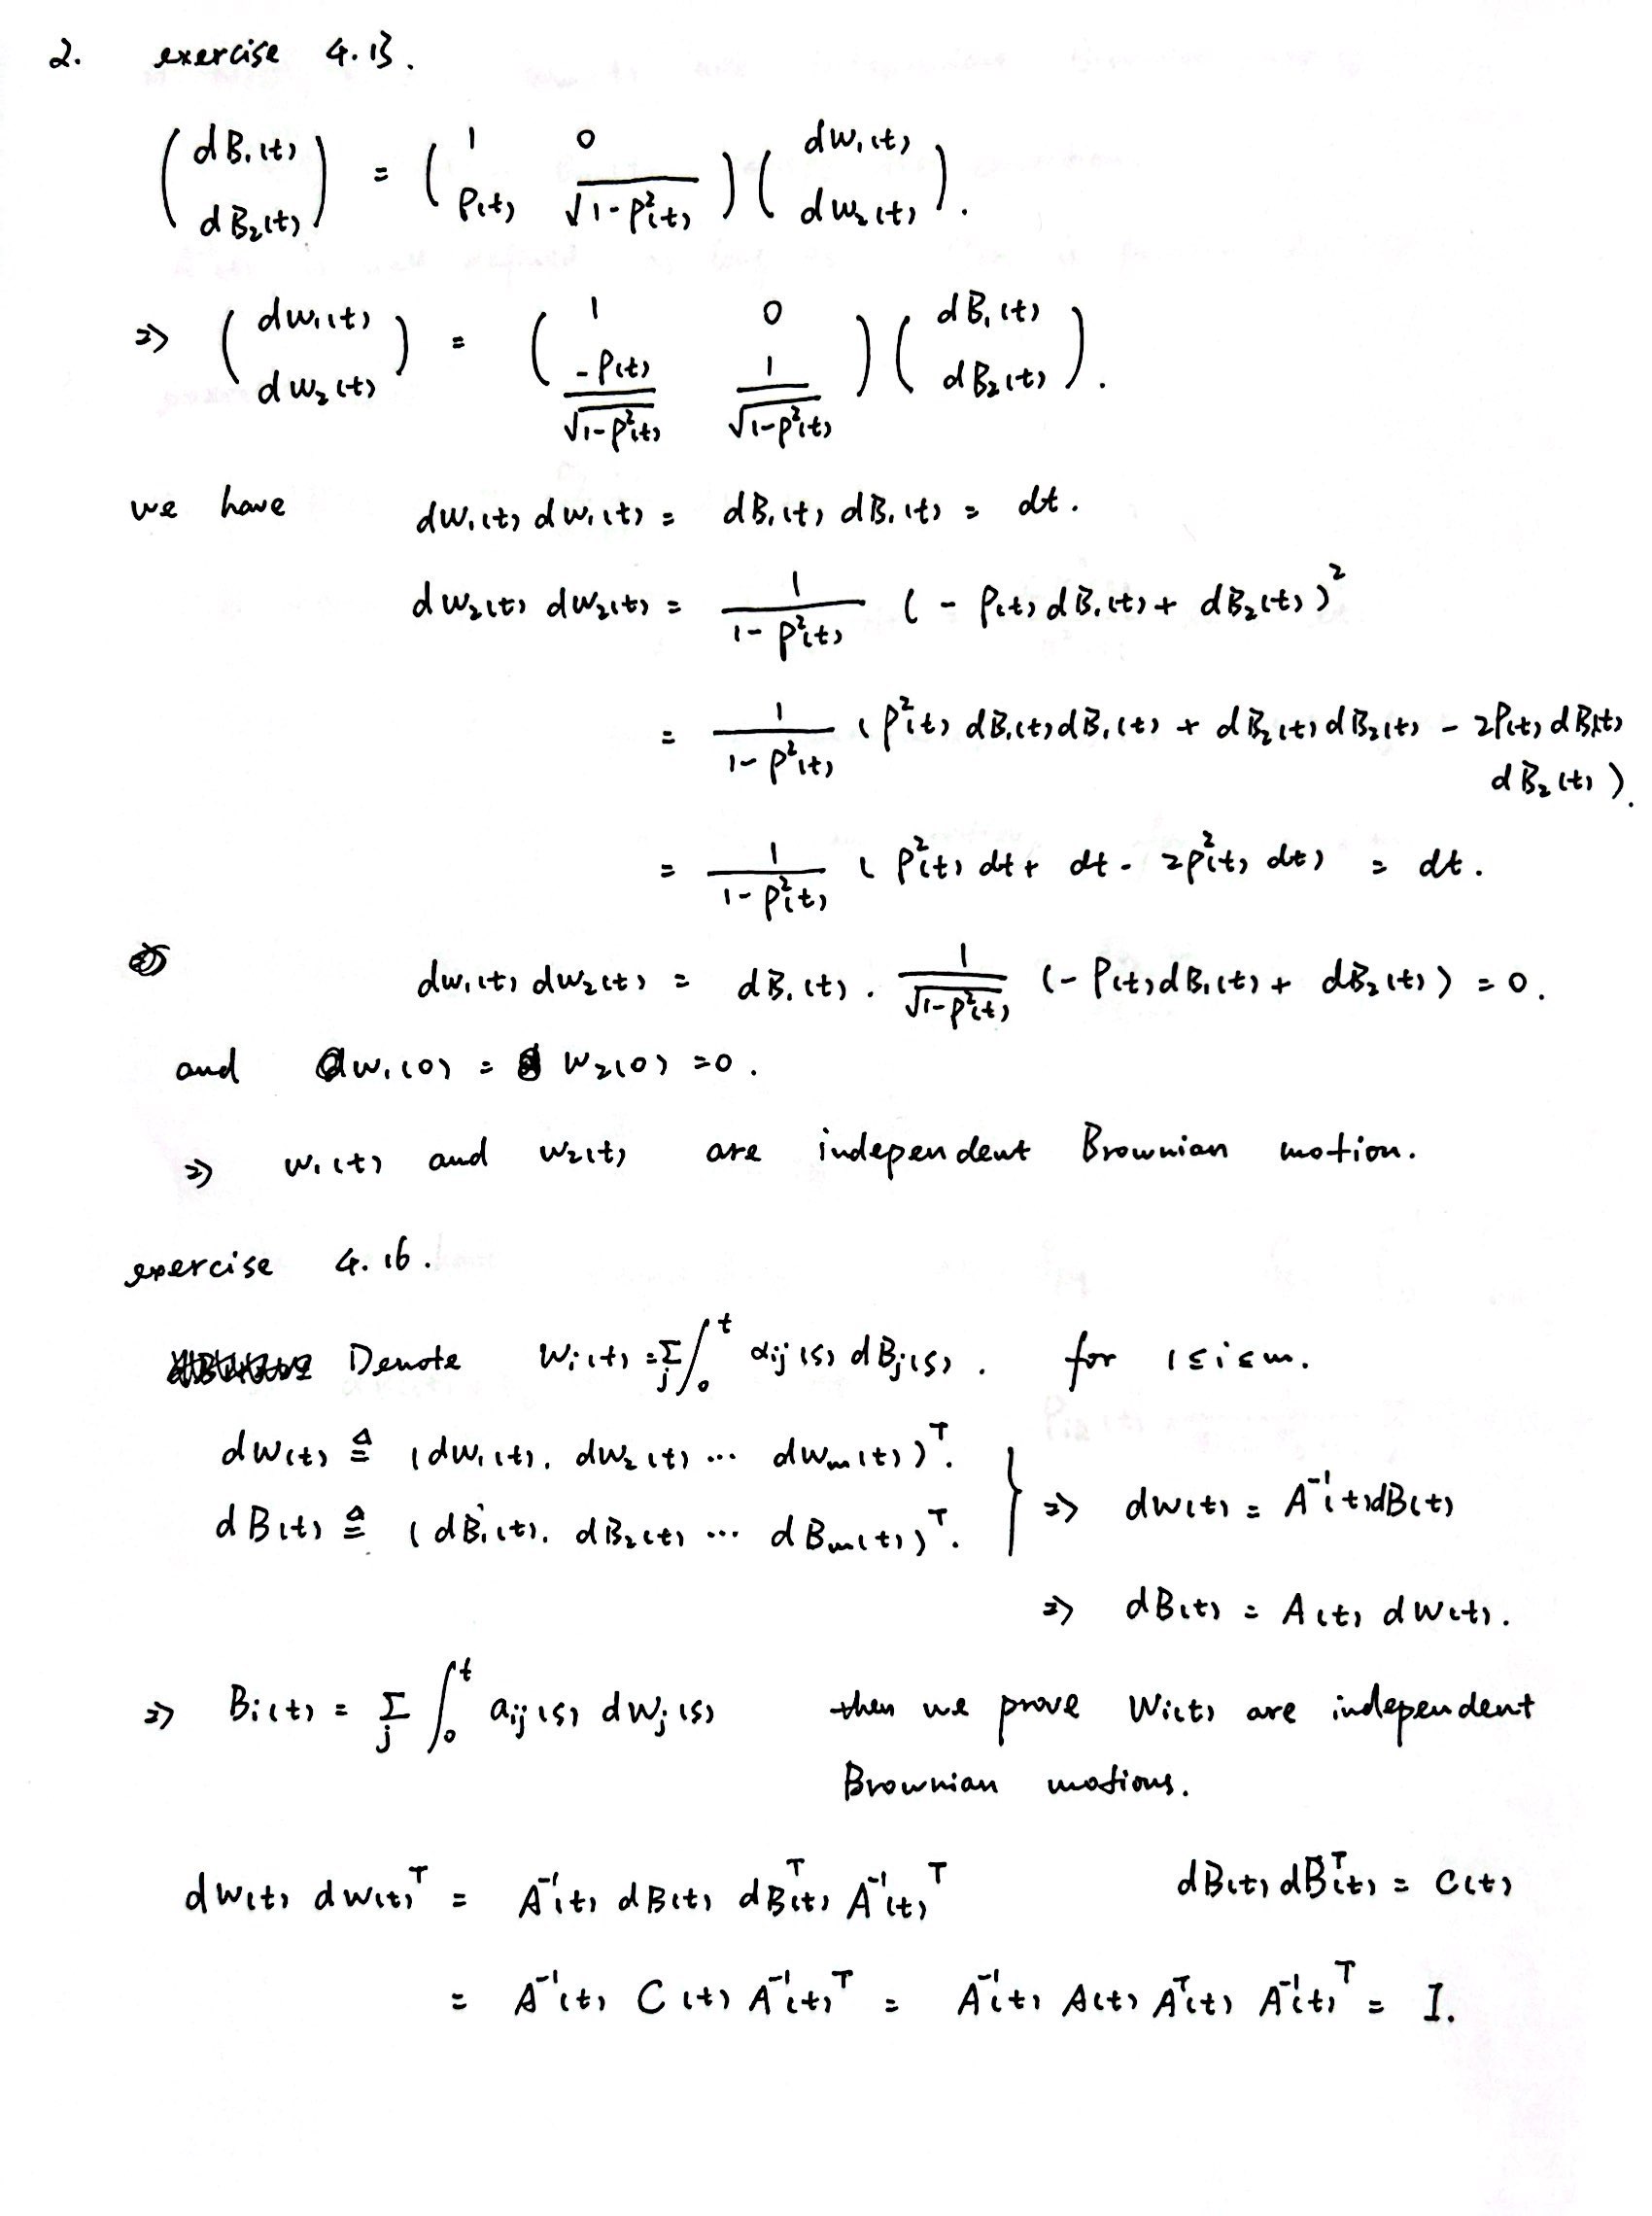 2. exercise 4.13.
( dB₁(t) dB₂(t) ) = ( 1 0 ρ(t) √(1-ρ²(t)) ) ( dW₁(t) dW₂(t) ).
⇒ ( dW₁(t) dW₂(t) ) = ( 1 0 -ρ(t)/√(1-ρ²(t)) 1/√(1-ρ²(t)) ) ( dB₁(t) dB₂(t) ).
we have dW₁(t) dW₁(t) = dB₁(t) dB₁(t) = dt.
dW₂(t) dW₂(t) = 1/(1-ρ²(t)) (-ρ(t) dB₁(t) + dB₂(t))²
= 1/(1-ρ²(t)) (ρ²(t) dB₁(t) dB₁(t) + dB₂(t) dB₂(t) - 2ρ(t) dB₁(t)
dB₂(t)).
= 1/(1-ρ²(t)) (ρ²(t) dt + dt - 2ρ²(t) dt) = dt.
dW₁(t) dW₂(t) = dB₁(t) · 1/√(1-ρ²(t)) (-ρ(t) dB₁(t) + dB₂(t)) = 0.
and W₁(0) = W₂(0) = 0.
⇒ W₁(t) and W₂(t) are independent Brownian motion.
exercise 4.16.
Denote Wᵢ(t) = Σⱼ ∫₀ᵗ αᵢⱼ(s) dBⱼ(s). for 1≤i≤m.
dW(t) ≜ (dW₁(t), dW₂(t) ... dWₘ(t))ᵀ.
dB(t) ≜ (dB₁(t), dB₂(t) ... dBₘ(t))ᵀ. } ⇒ dW(t) = A⁻¹(t) dB(t)
⇒ dB(t) = A(t) dW(t).
⇒ Bᵢ(t) = Σⱼ ∫₀ᵗ aᵢⱼ(s) dWⱼ(s) then we prove Wᵢ(t) are independent
Brownian motions.
dW(t) dW(t)ᵀ = A⁻¹(t) dB(t) dBᵀ(t) A⁻¹(t)ᵀ dB(t) dBᵀ(t) = C(t)
= A⁻¹(t) C(t) A⁻¹(t)ᵀ = A⁻¹(t) A(t) Aᵀ(t) A⁻¹(t)ᵀ = I.